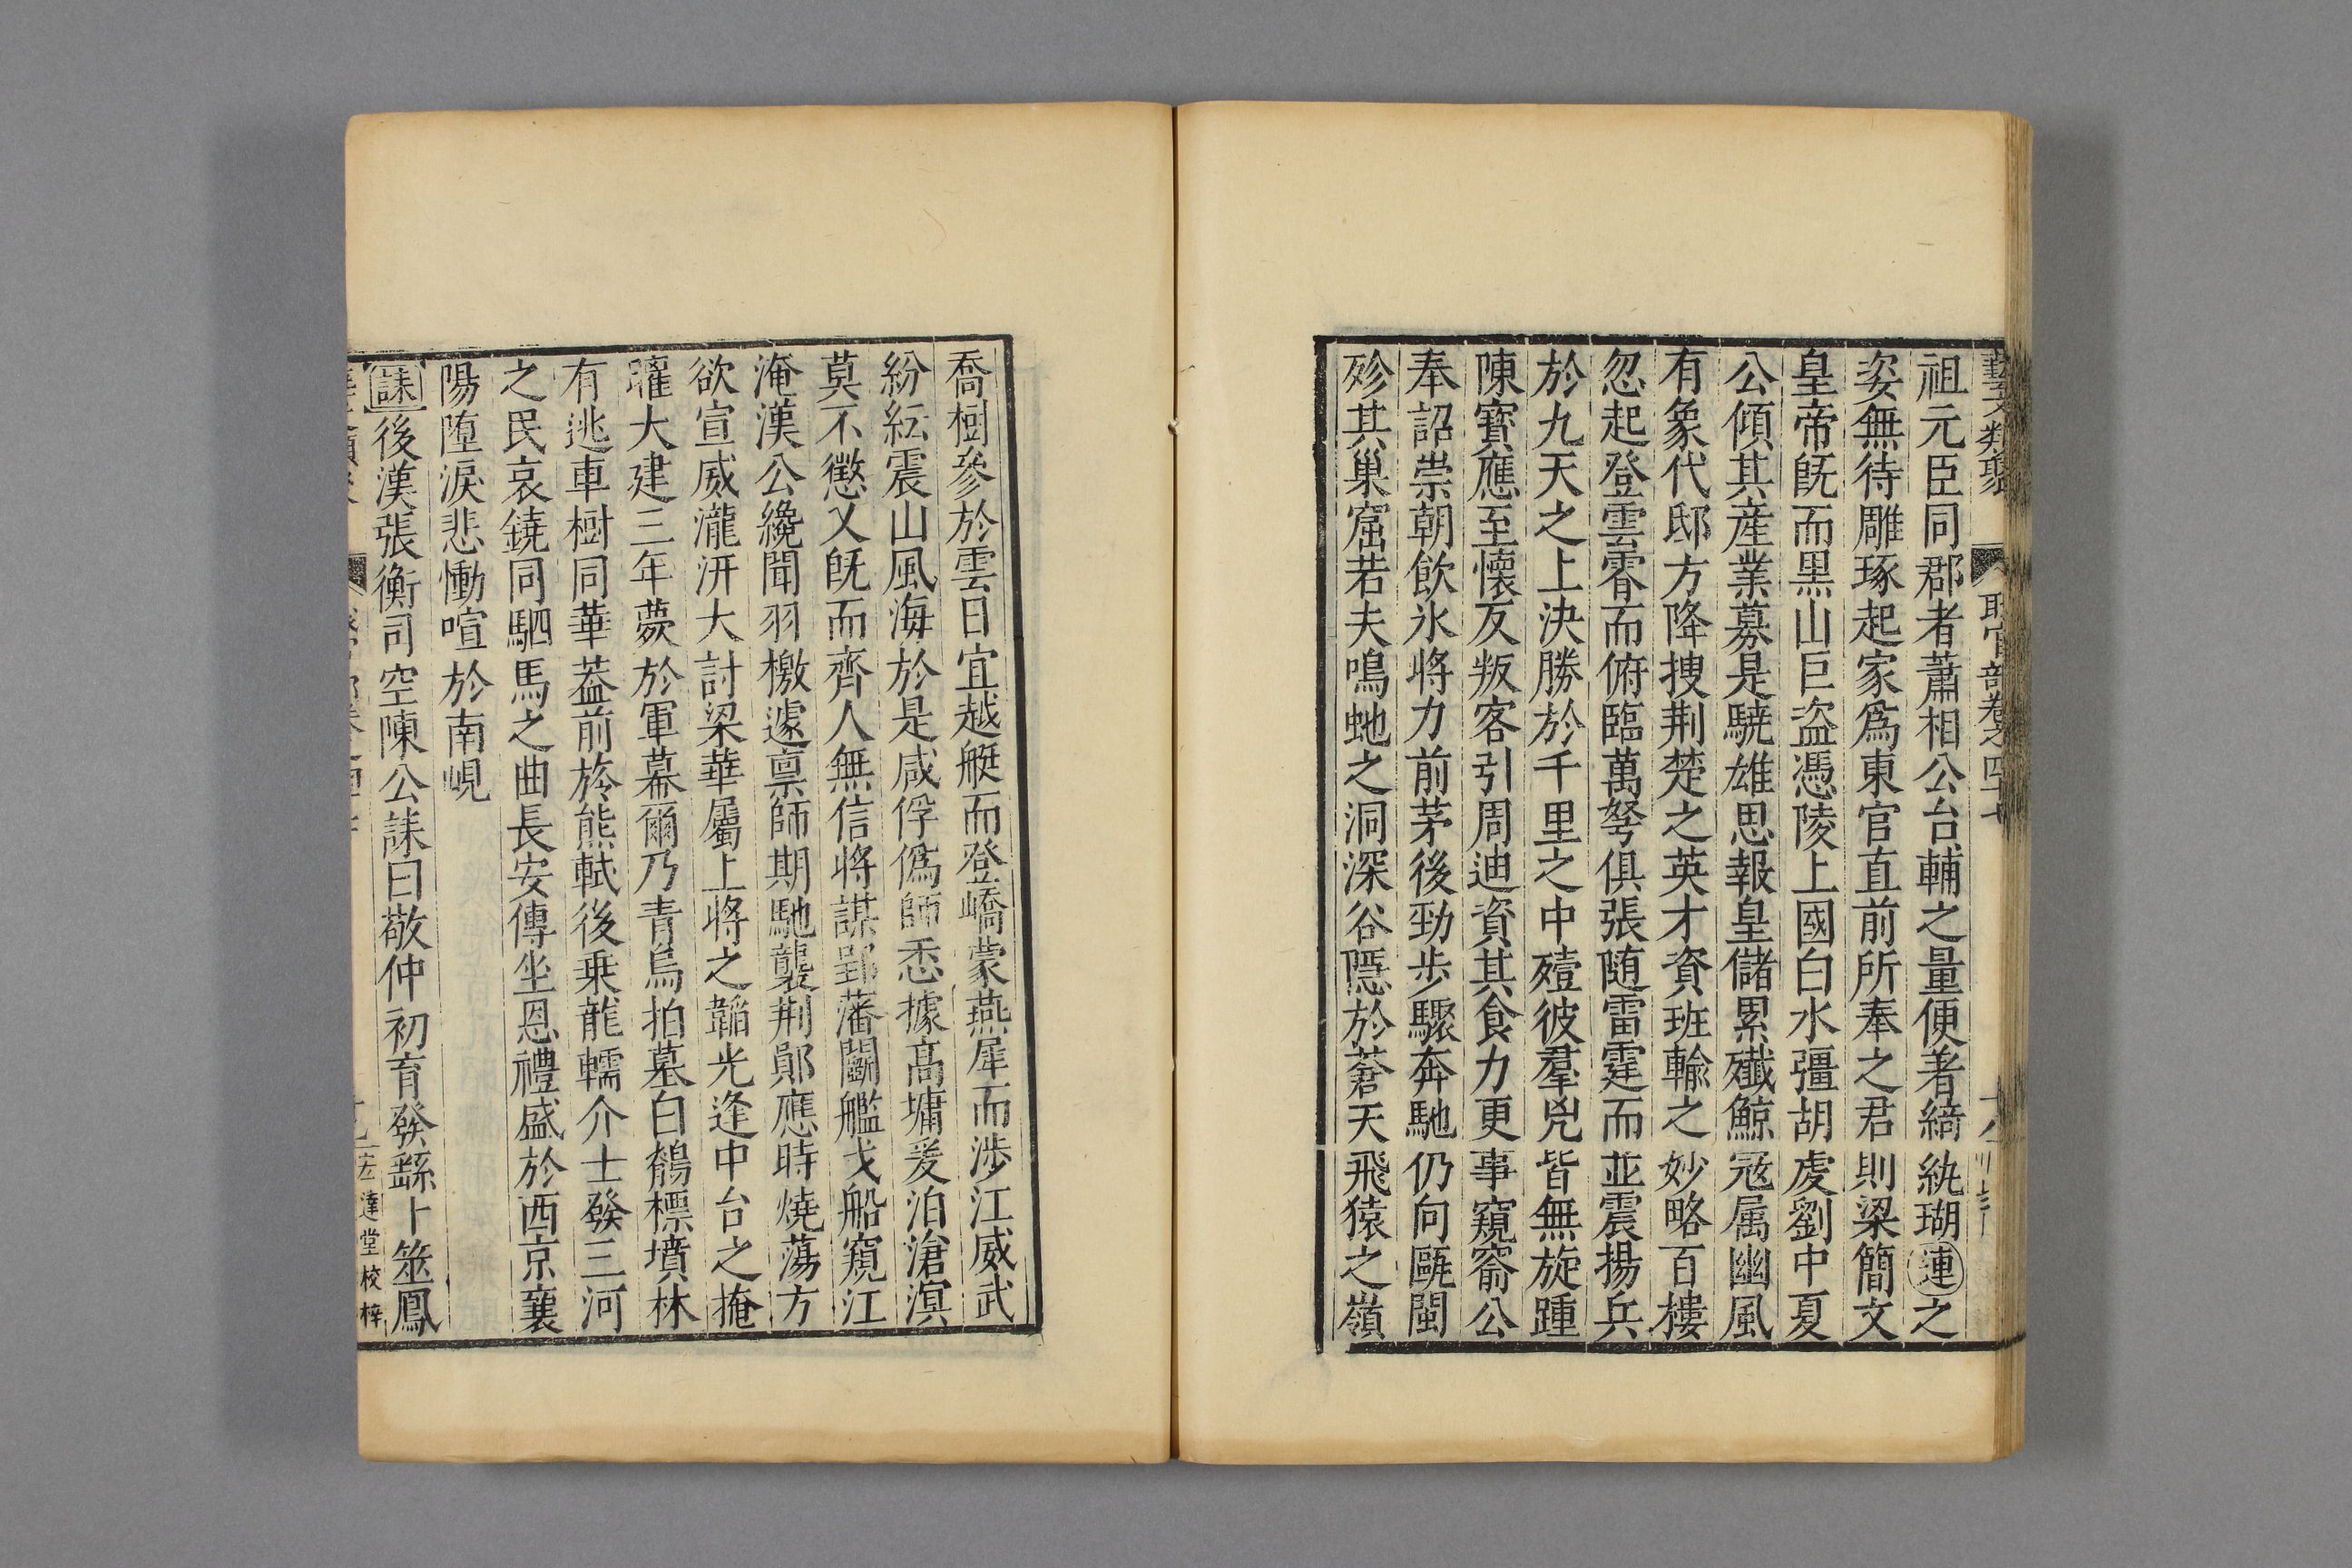 藝文類聚 職官部卷之四十七
祖元臣同郡者蕭相公台輔之量便著綺紈瑚璉之
姿無待雕琢起家爲東官直前所奉之君則梁簡文
皇帝旣而黒山巨盗憑陵上國白水彊胡虔劉中夏
公傾其産業募是驍雄思報皇儲累殲鯨冦属幽風
有象代邸方降捜荆楚之英才資班輸之妙略百樓
忽起登雲霄而俯臨萬弩俱張随雷霆而並震揚兵
於九天之上決勝於千里之中殪彼羣兇皆無旋踵
陳寳應至懐反叛客引周迪資其食力更事窺窬公
奉詔崇朝飲氷將力前茅後勁歩驟奔馳仍向甌閩
殄其巢窟若夫鳴虵之洞深谷隱於蒼天飛猿之嶺
喬樹參於雲日宜越艇而登嶠蒙燕犀而渉江威武
紛紜震山風海於是咸俘僞師悉據髙墉爰泊滄溟
莫不懲乂旣而齊人無信將謀郢藩鬭艦戈船窺江
淹漢公纔聞羽檄遽禀師期馳襲荆鄖應時燒蕩方
欲宣威瀧汧大討梁華屬上將之韜光逢中台之掩
曜大建三年薨於軍幕爾乃青烏拍墓白鶴標墳林
有逃車樹同華葢前旍熊軾後乗龍轜介士發三河
之民哀鐃同駟馬之曲長安傳坐恩禮盛於西京襄
陽墮淚悲慟喧於南峴
誄後漢張衡司空陳公誄曰敬仲初育發繇卜筮鳳
達堂校梓